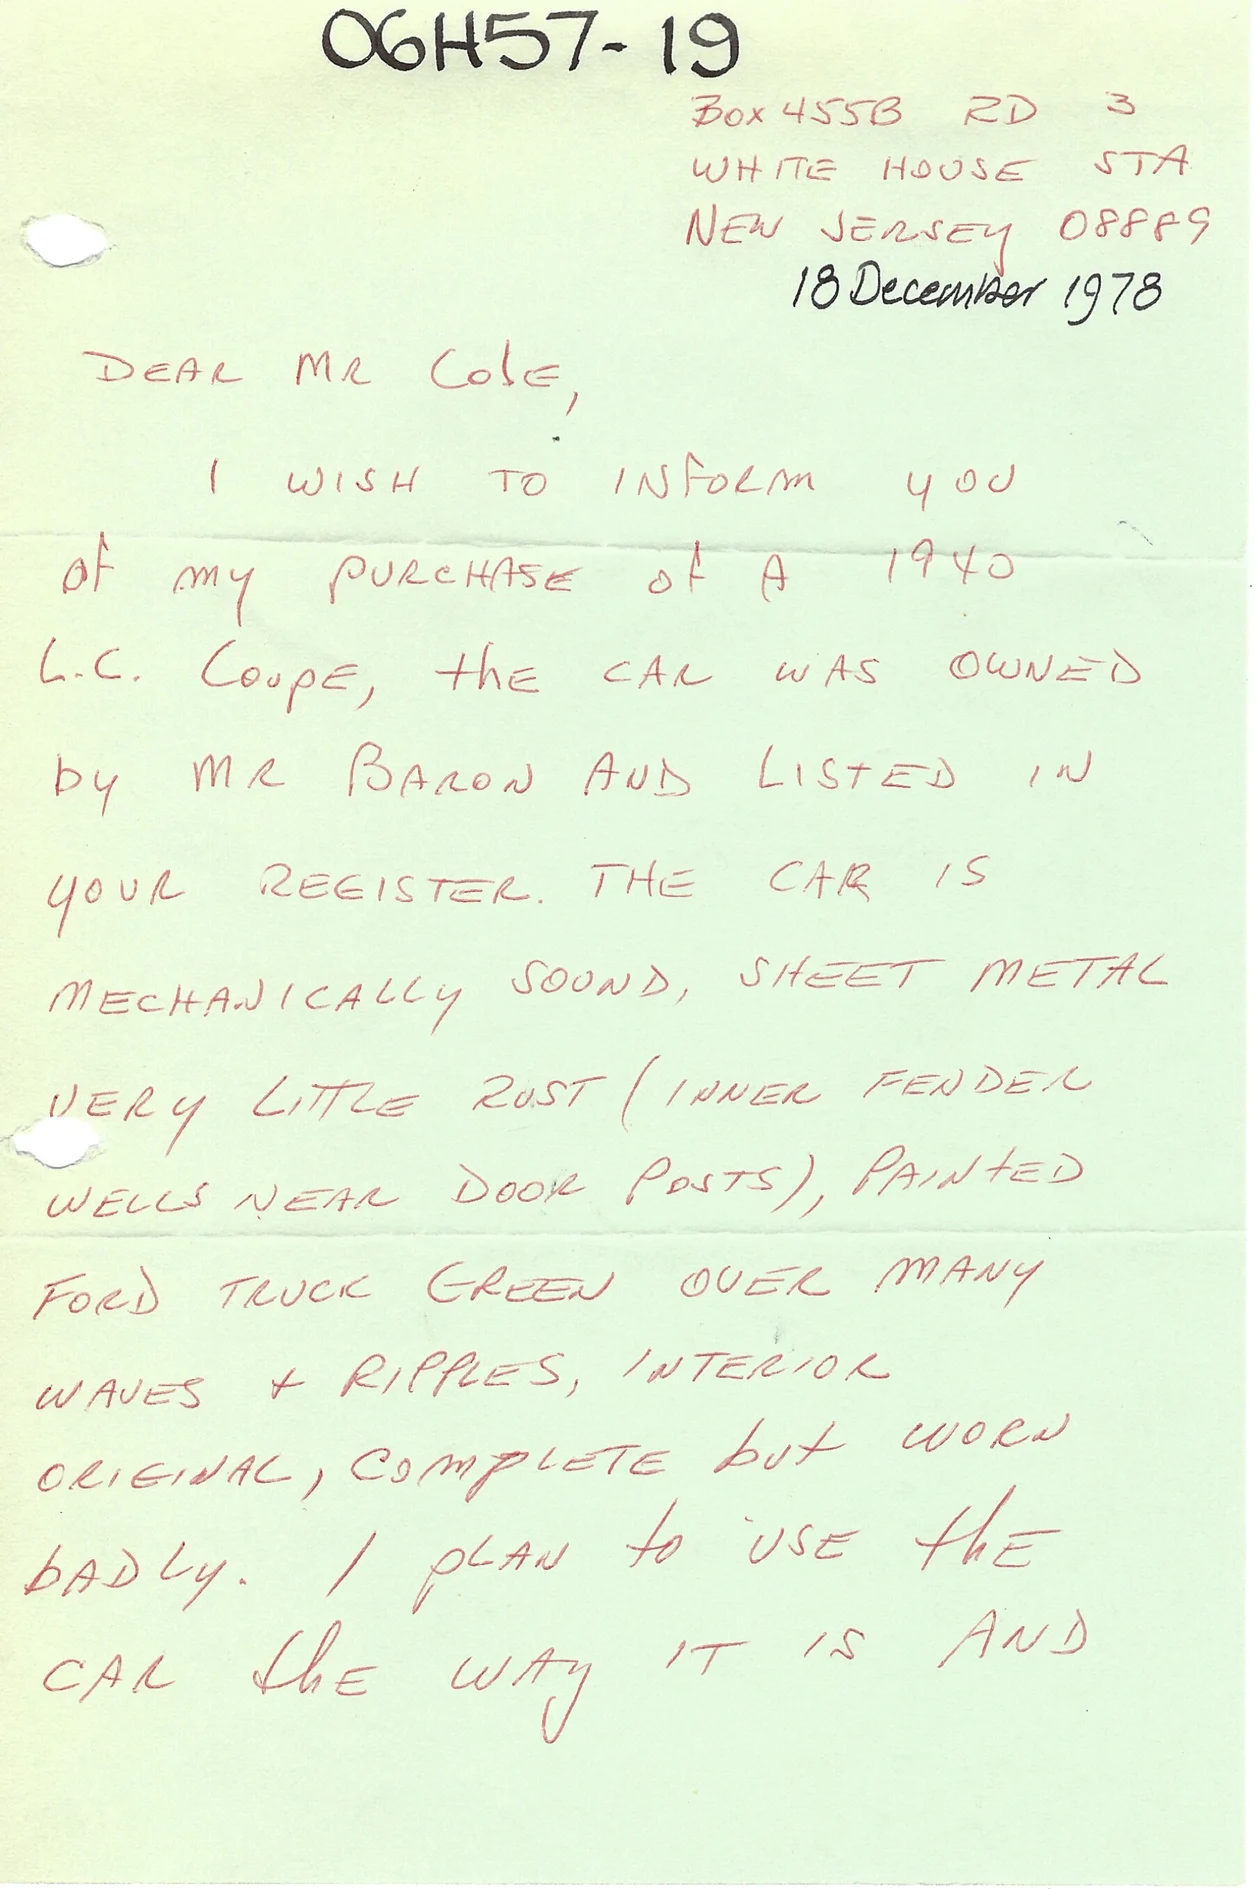 06H57-19
Box 455B RD 3
WHITE HOUSE STA
NEW JERSEY 08889
18 December 1978
DEAR MR Cole,
I WISH TO INFORM YOU
of my PURCHASE of A 1940
L.C. Coupe, the CAR WAS OWNED
by MR BARON AND LISTED IN
YOUR REGISTER. THE CAR IS
MECHANICALLY SOUND, SHEET METAL
VERY LITTLE RUST (INNER FENDER
WELLS NEAR DOOR POSTS), PAINTED
FORD TRUCK GREEN OVER MANY
WAVES + RIPPLES, INTERIOR
ORIGINAL, COMPLETE but WORN
bADLY. I PLAN to USE the
CAR the WAY IT IS AND